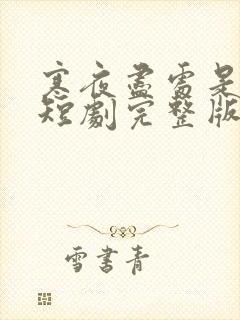 寒夜盡處是
短劇完整版
雪書青